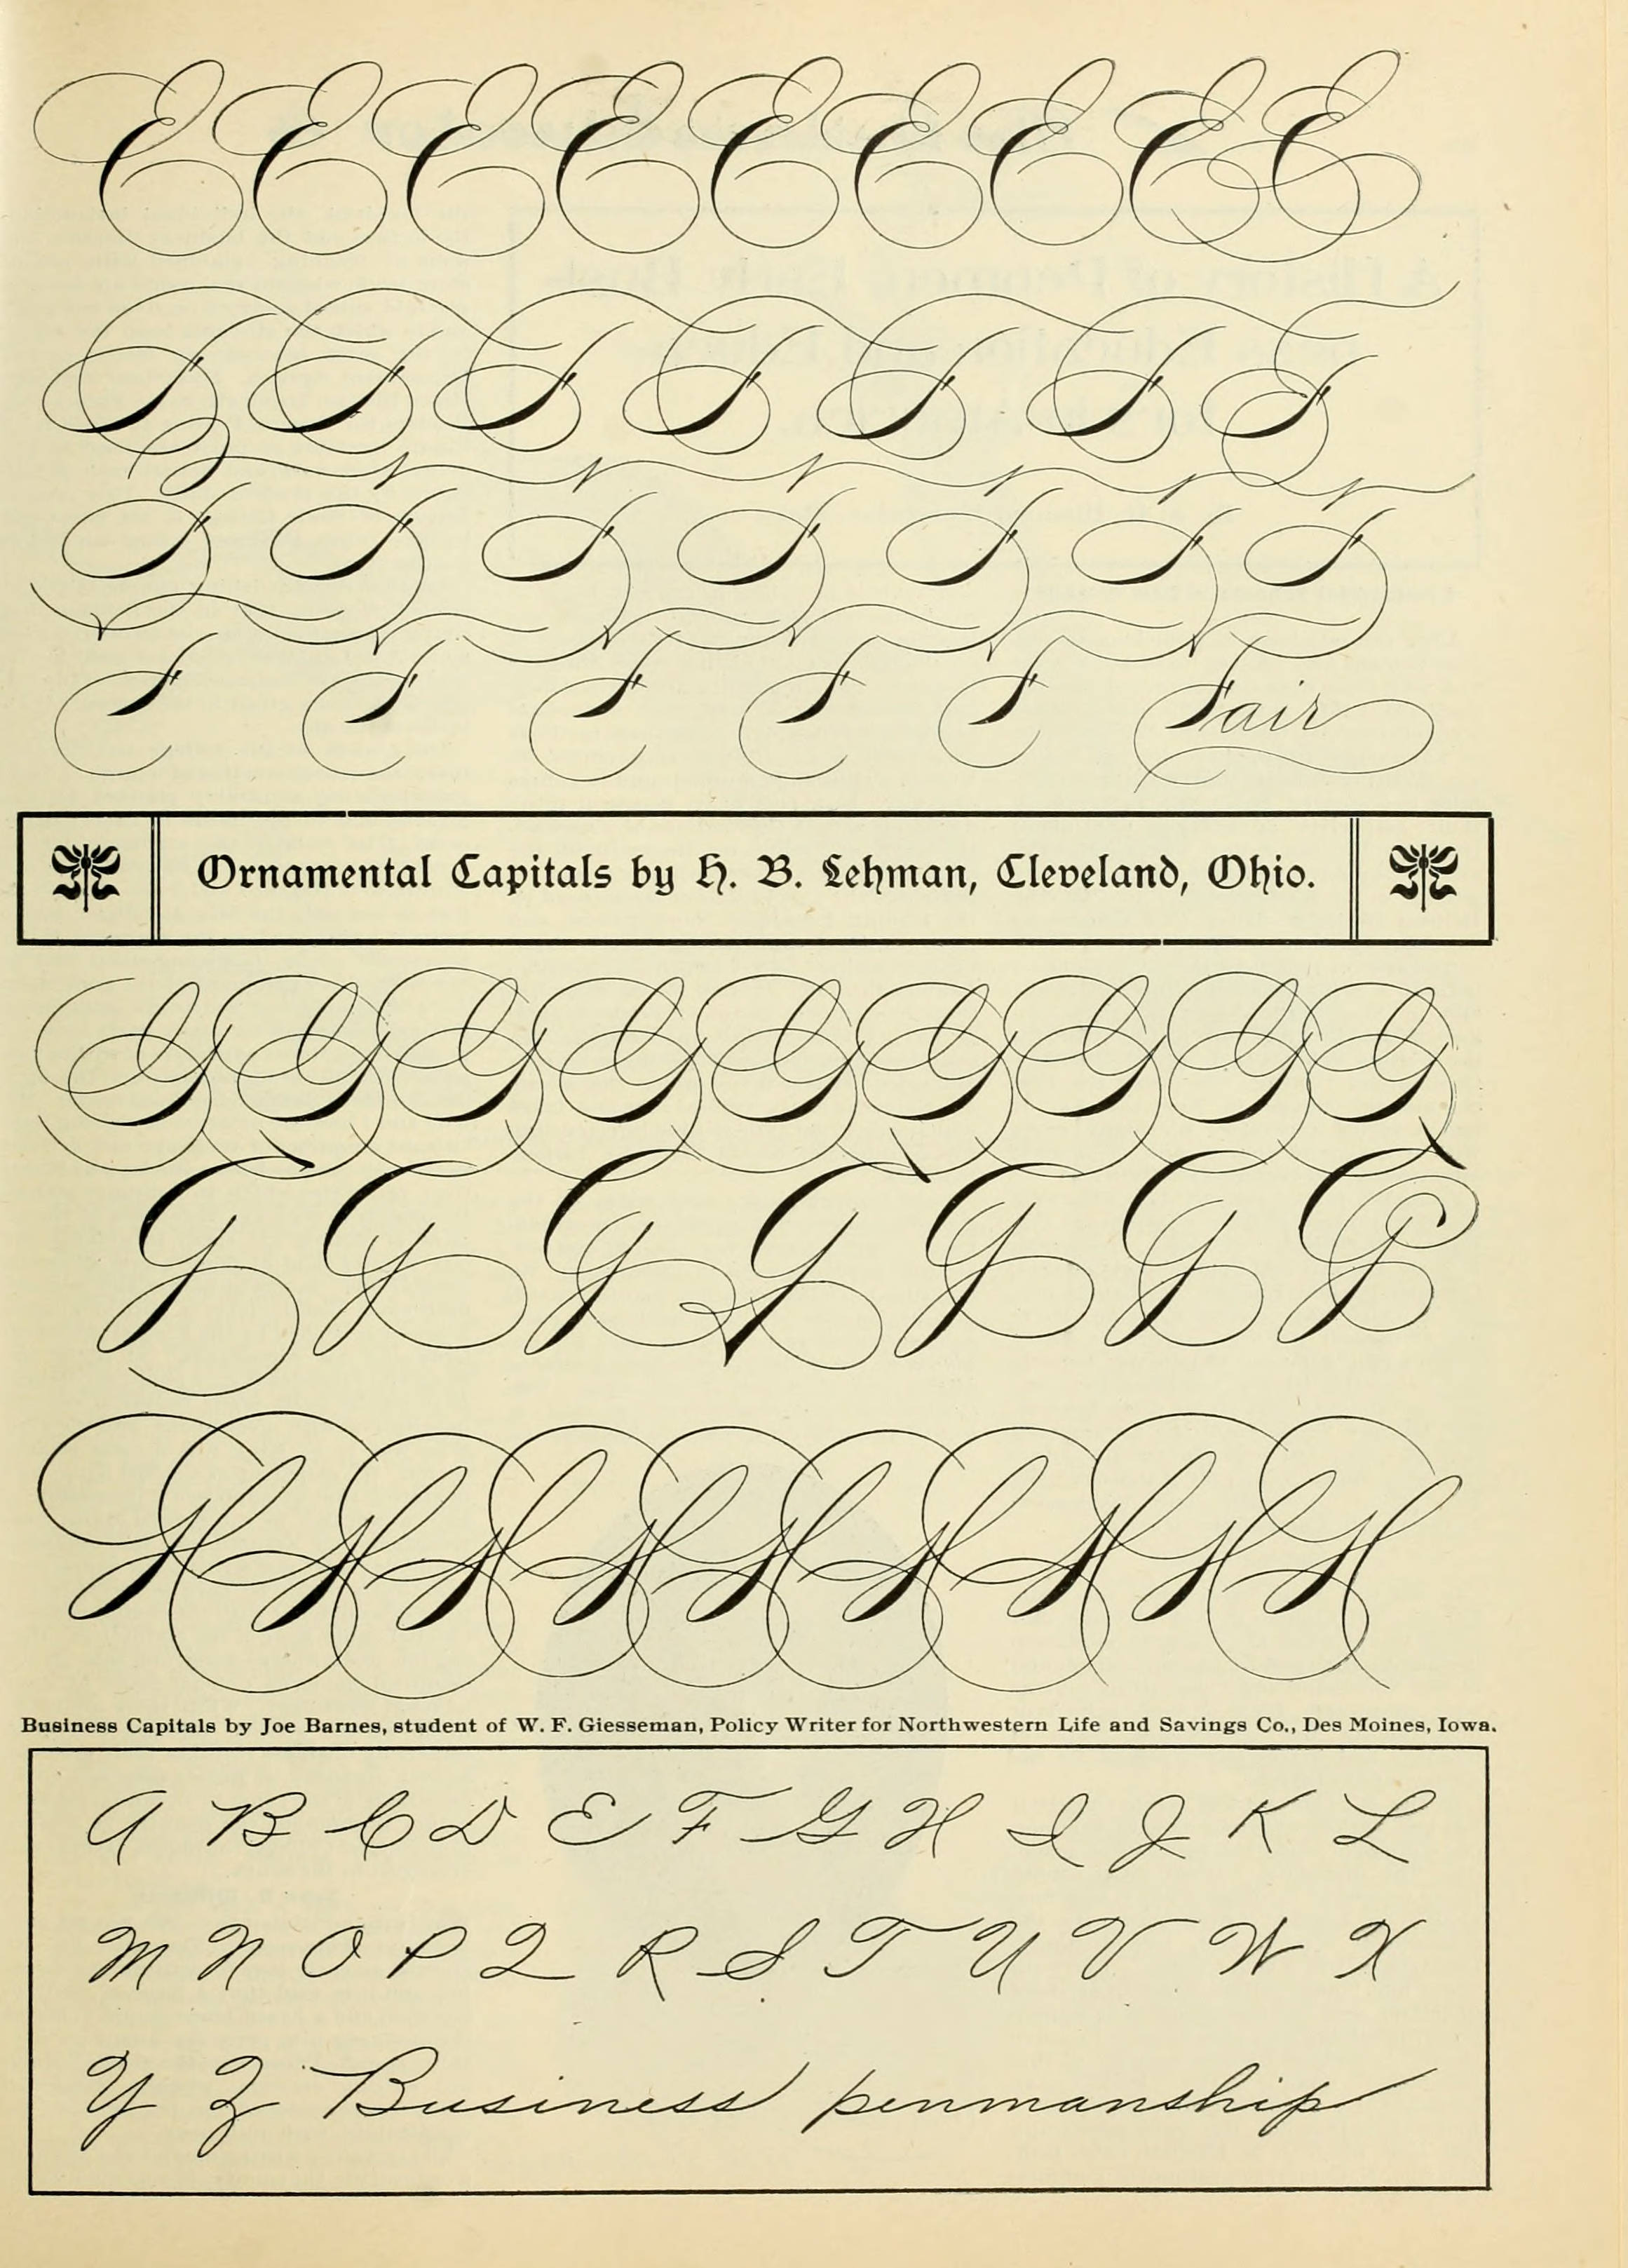 E E E E E E E E E
F F F F F F F
F F F F F F F
F F F F F Fair
Ornamental Capitals by H. B. Lehman, Cleveland, Ohio.
G G G G G G G G G
G G G G G G G
H H H H H H H H H
Business Capitals by Joe Barnes, student of W. F. Giesseman, Policy Writer for Northwestern Life and Savings Co., Des Moines, Iowa.
A B C D E F G H I J K L
M N O P Q R S T U V W X
Y Z Business penmanship